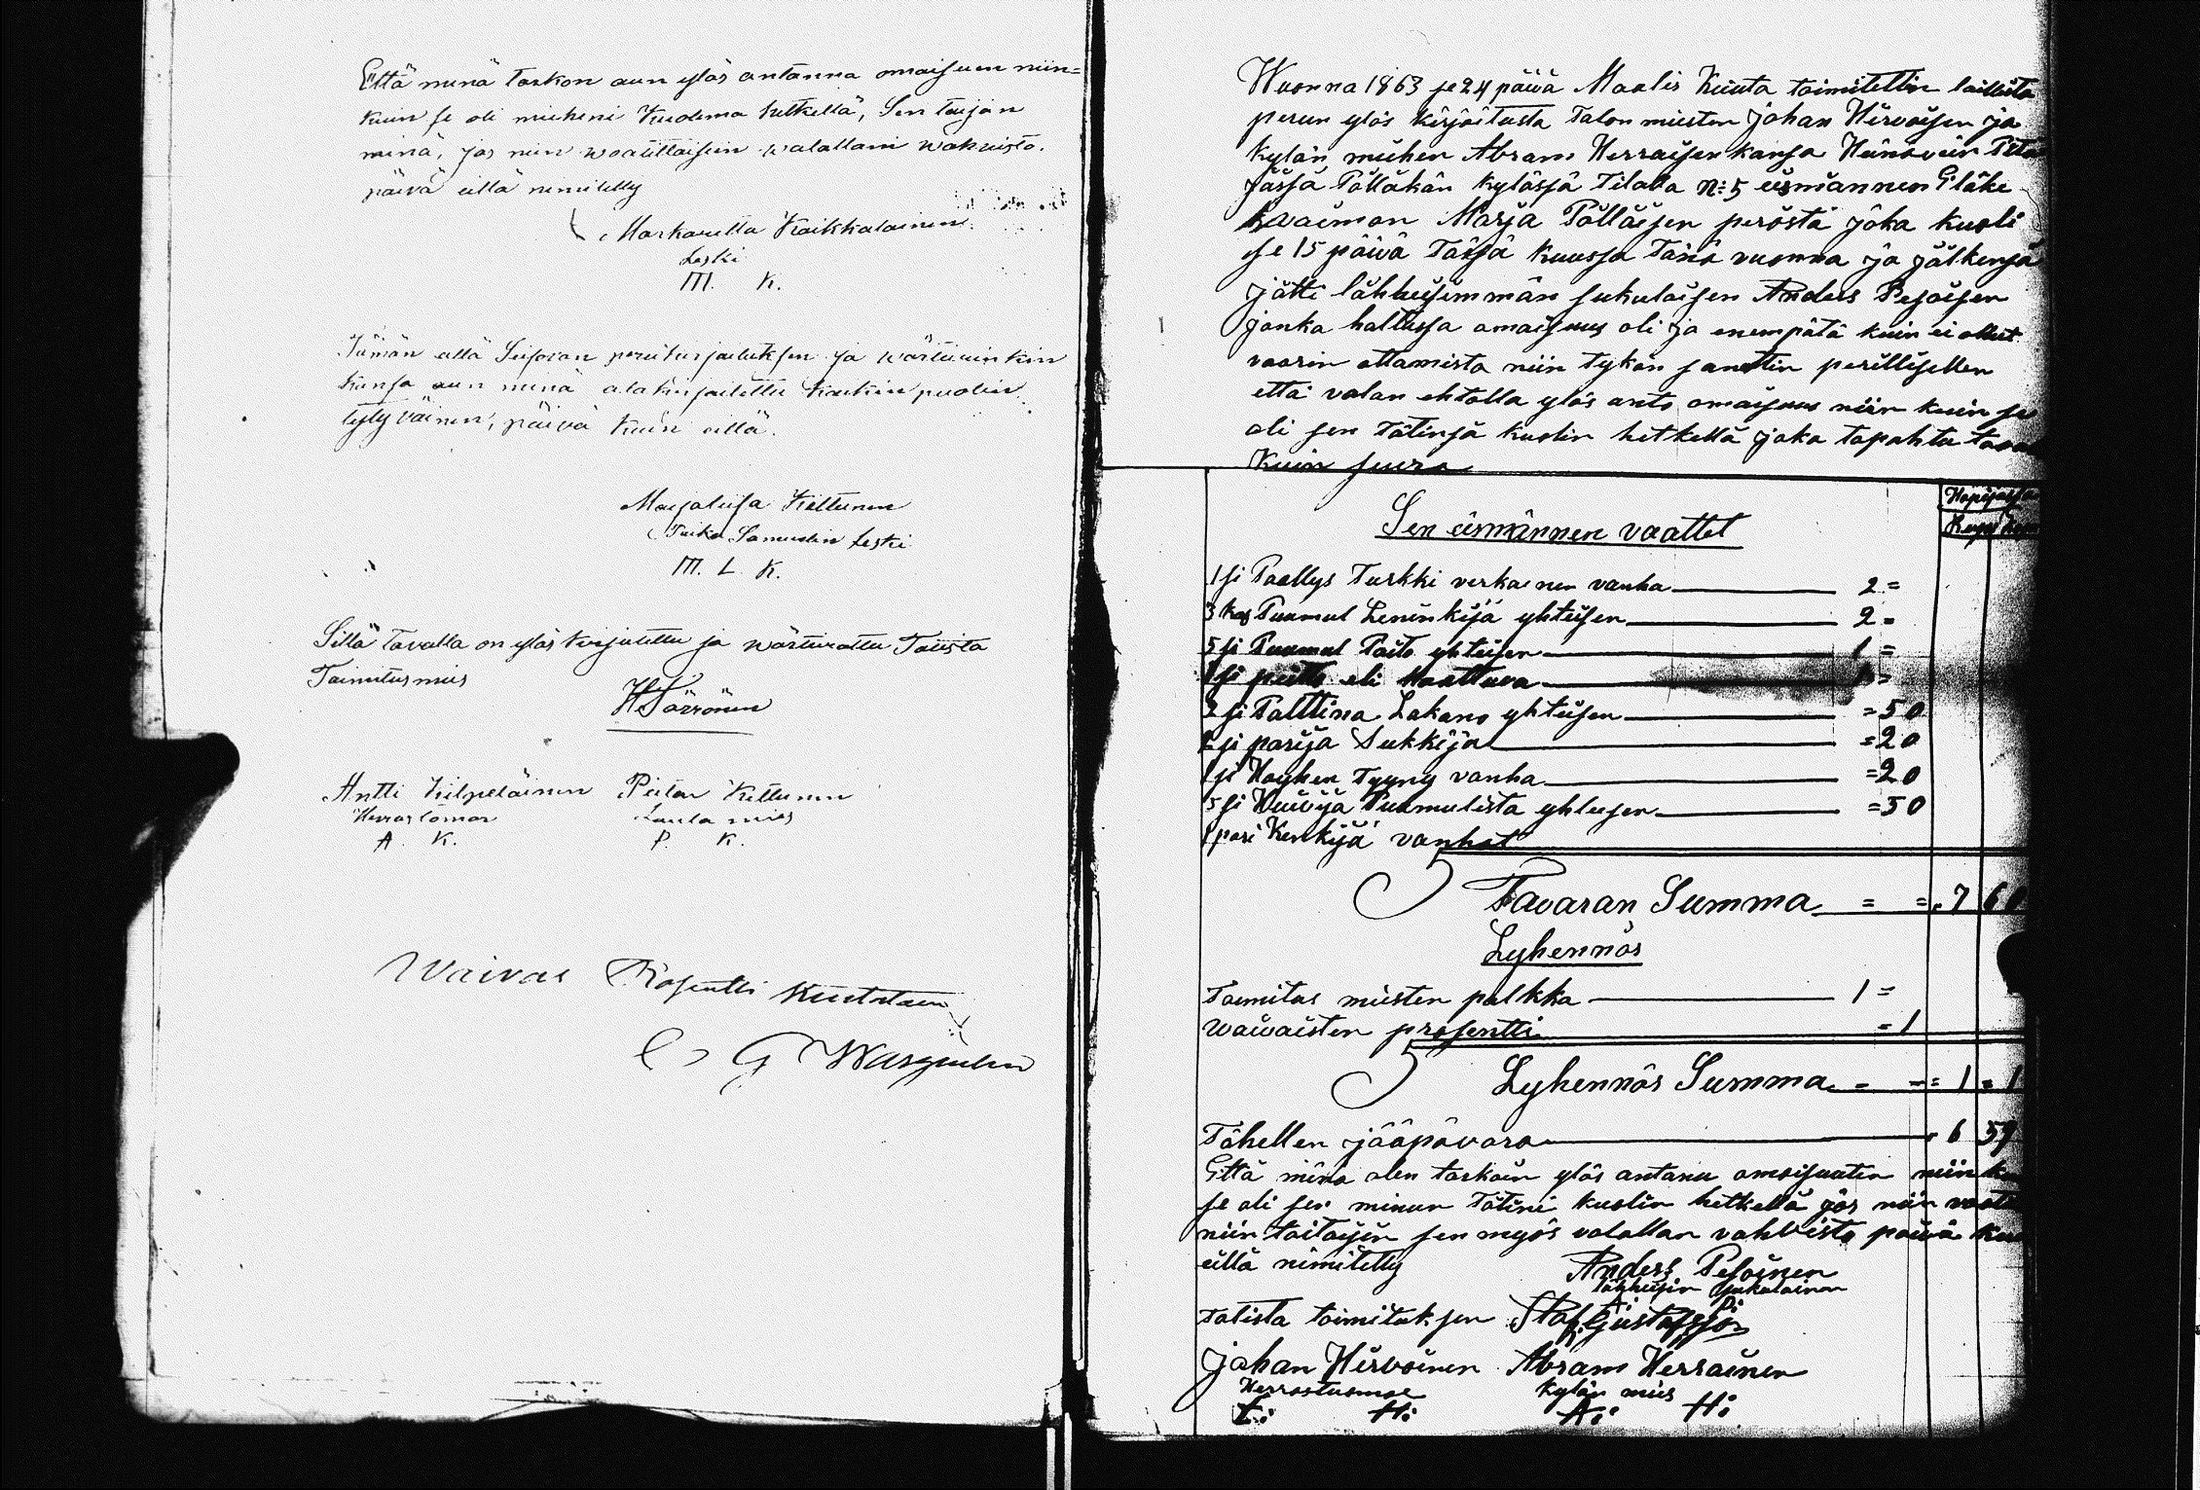 Että minä tarkon aun ylös antanna omaisuen niin=
kuin se oli mieheni kuolema hetkellä, Sen taijan
minä, jos niin waatittaisiin walallani wahvista.
päivä cillä nimitetty
Markareetta Kaikkalainen
Leski
M. K.
Tämän cillä Seisovan perukirjoituksen ja wärteeringin
kansa aun minä alakirjoitettu kaikin puolin
tyytyväinen, päivä kuin cillä.
Marjaleisa Kettunen
Samuelin Leski
M. L. K.
Sillä tavalla on ylös kirjoitettu ja wärteerattu Toiista
Toimitusmies
H Särrönen
Antti Kilpeläinen Pietar Kettunen
Herrastömar Lauta mies
A. K. P. K.
Waivas Rosentti kuitataan
G Wasgielen
Wuonna 1863 se 24 päivä Maalis Kuuta toimitettiin laillista
perun ylös kirjoitusta Talon miesten Johan Hirvoisen ja
kylän miehen Abram Herraisen kansa Heinävein
jässä Pölläkän kylässä Tilalla N:5 eismännen Eläke
waiman Marja Pölläisen peröstä joka kuoli
se 15 päivä Tässä kuussa Tänä vuonna ja jälkensä
jätti lähheisimmän sukulaisen Anders Pesoisen
jonka hallussa omaisuus oli ja enempätä kuin ei ollut
vaarin ottamista niin tykön sanottin perilliselle
että valan ehtolla ylös anto omaisuus niin kuin se
oli sen Tätinsä kuolin hetkellä joka tapahtu
Kuin seura
Sen eismännen vaattet
1 si Paallys Turkki verkanen vanha 2 =
3 Puumul Leninkijä yhteisen 2 =
5 si Puumul Paito yhteisen 1 =
1 si peitto eli Maattava 1 =
2 si Palttina Lakano yhteisen = 50
2 si parija Sukkija = 20
1 si Höyhen Tyyny vanha = 20
5 si Huivija Puumulista yhteisen = 50
1 pari Kenkijä vanhat
Tavaran Summa = = 7 60
Lyhennös
Toimitus miesten palkka 1 =
waivaisten prosentti = 1
Lyhennös Summa - = 1 = 1
Tähellen jääpävara 6 59
Että minä olen tarkoin ylös antanu omaisuuten niin
se oli sen minun Tätini kuolin hetkellä jos niin
niin taitaisin sen myös valallan vahvista päivä
cillä nimitetty Anders Pesoinen
lähheisin sukulainen
A: P:
Tolista toimituksen Staf. Gustafsson
Johan Hirvoinen Abram Herrainen
Herrastuomar kylän mies
H: A: H: